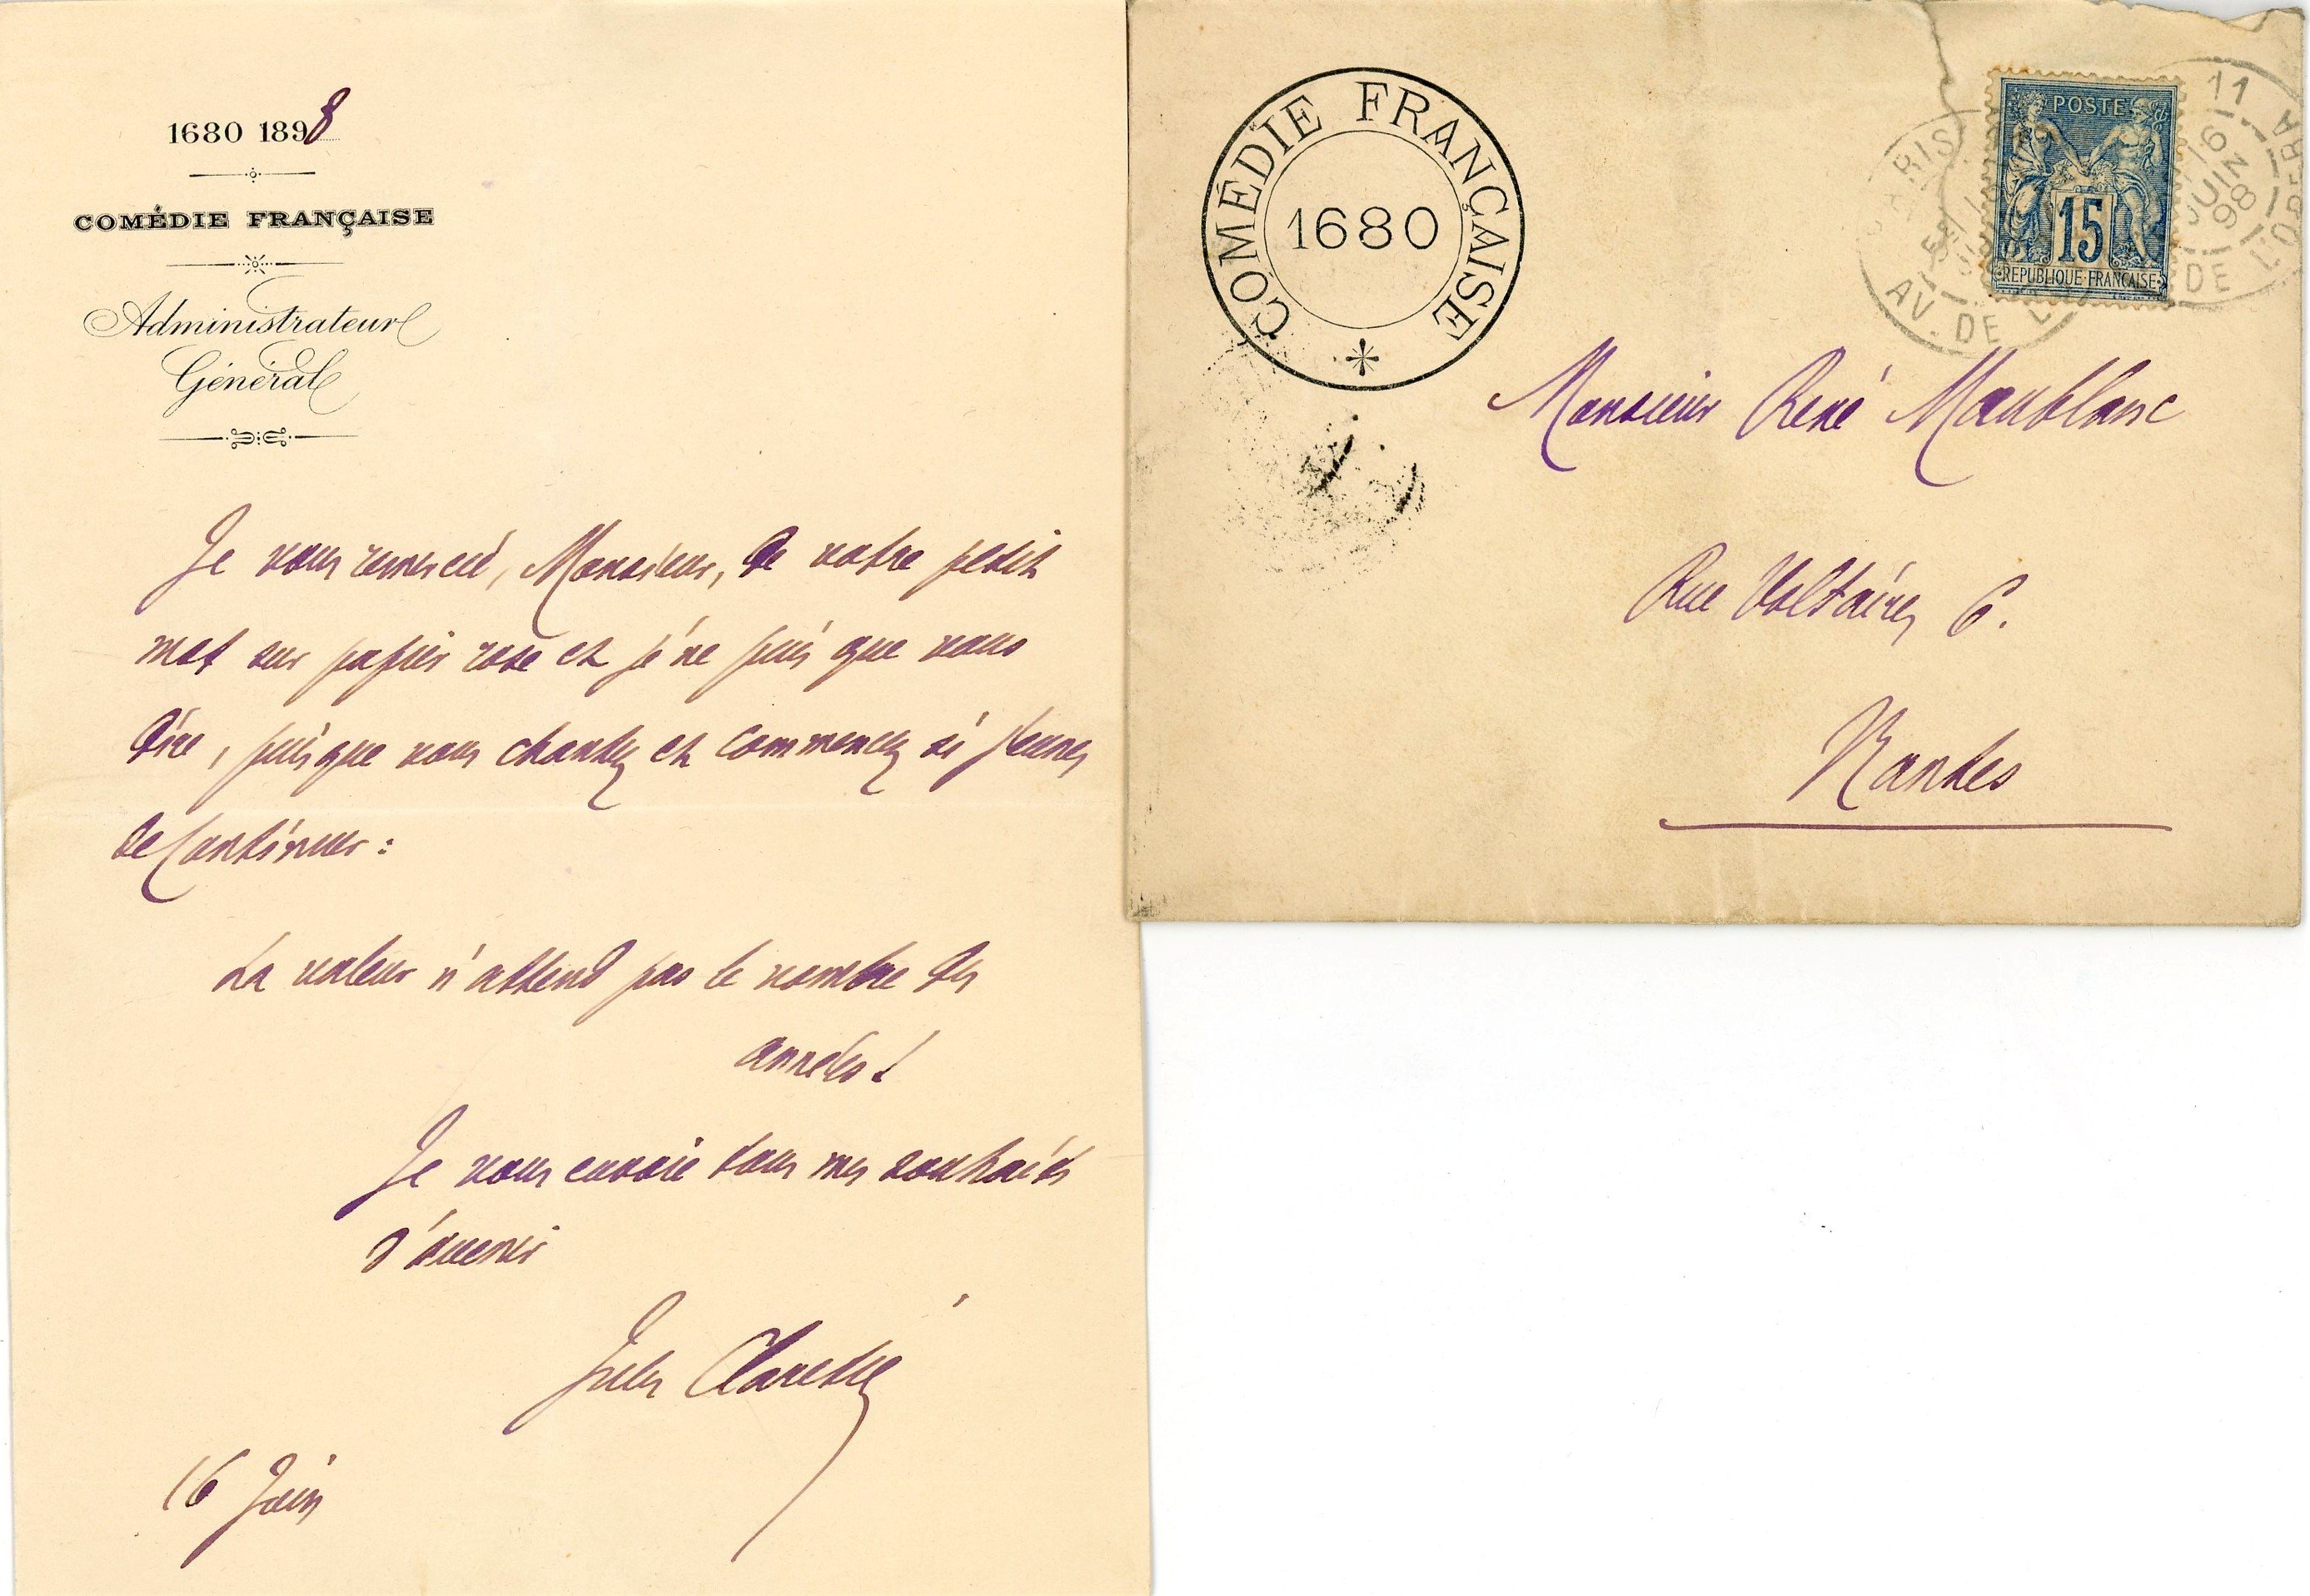 1680 1898
COMÉDIE FRANÇAISE
Administrateur
Général
Je vous remercie, Monsieur, de votre petit
mot sur papier rose et je ne puis que vous
dire, puisque vous chantez et commencez si jeune,
de continuer :
La valeur n'attend pas le nombre des
années !
Je vous envoie tous mes souhaits
d'avenir
Jules Claretie
16 Juin
COMÉDIE FRANÇAISE
1680
POSTES
15
REPUBLIQUE FRANÇAISE
PARIS
AV. DE L'
11
16
JUIN
98
DE L'OPERA
Monsieur René Maublanc
Rue Voltaire, 6.
Nantes